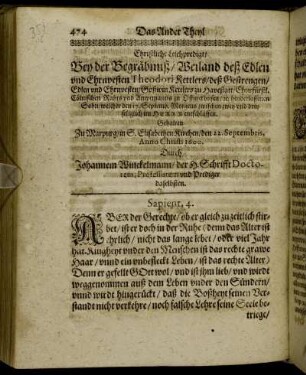 474 Das Ander Theyl
Christliche Leichpredigt/
Bey der Begräbnuß/ Weiland deß Edlen
und Ehrnvesten Theodori Kettlers/ deß Gestrengen/
Edlen und Ehrnvesten/ Kettlers zu
Cölnischen Rahts
Sohn/ welcher den 19. Septemb. zu
seliglich im HErrn entschlaffen.
Gehalten
Zu Marpurg/ in S. Elisabethen Kirchen/ den 22. Septembris.
Anno Christi 1600.
Durch
Johannem Winckelmann/ der H. Schrifft Docto-
rem, Professorem und Prediger
daselbsten.
Sapient. 4.
ABER der Gerechte/ ob er gleich zu zeitlich stir-
bet/ ist er doch in der Ruhe/ denn das Alter ist
ehrlich/ nicht das lange lebet/ oder viel Jahr
hat. Klugheyt under den Menschen ist das recht grawe
Haar/ und ein unbefleckt Leben/ ist das rechte Alter/
Denn er gefelt GOtt wol/ und ist ihm lieb/ und wirdt
weggenommen auß dem Leben under den Sündern/
und wirdt hingerückt/ daß die Boßheyt seinen Ver-
standt nicht verkehre/ noch falsche Lehre seine Seele be-
triege/